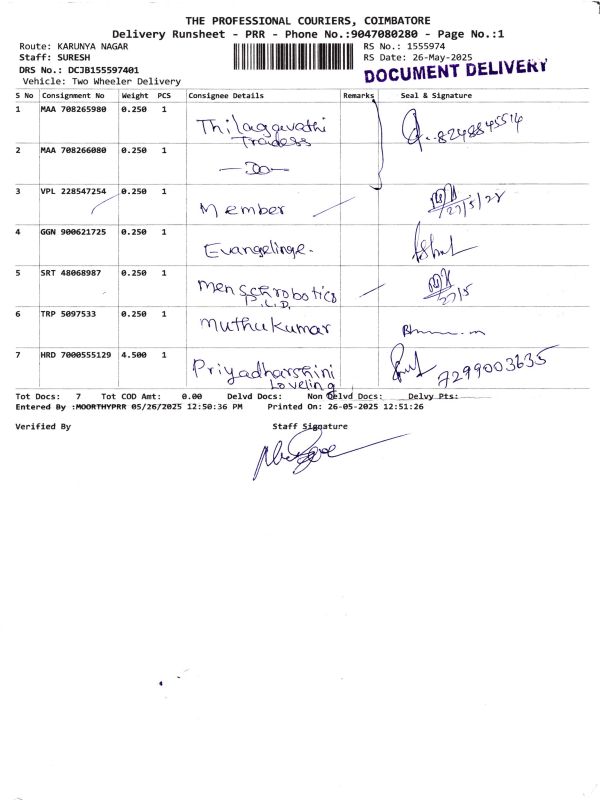 THE PROFESSIONAL COURIERS, COIMBATORE
Delivery Runsheet - PRR - Phone No.:9047080280 - Page No.:1
Route: KARUNYA NAGAR RS No.: 1555974
Staff: SURESH RS Date: 26-May-2025
DRS No.: DCJB155597401 DOCUMENT DELIVERY
Vehicle: Two Wheeler Delivery
S No Consignment No Weight PCS Consignee Details Remarks Seal & Signature
1 MAA 708265980 0.250 1 Thilaggavathi
Tradess 8248845514
2 MAA 708266080 0.250 1 —Do—
3 VPL 228547254 0.250 1 Member 27/5/
4 GGN 900621725 0.250 1 Evangelinge.
5 SRT 48068987 0.250 1 menschrobotics
P.L.D. 27/5
6 TRP 5097533 0.250 1 muthukumar
7 HRD 7000555129 4.500 1 Priyadharshini
Loveling 7299003635
Tot Docs: 7 Tot COD Amt: 0.00 Delvd Docs: Non Delvd Docs: Delvy Pts:
Entered By :MOORTHYPRR 05/26/2025 12:50:36 PM Printed On: 26-05-2025 12:51:26
Verified By Staff Signature